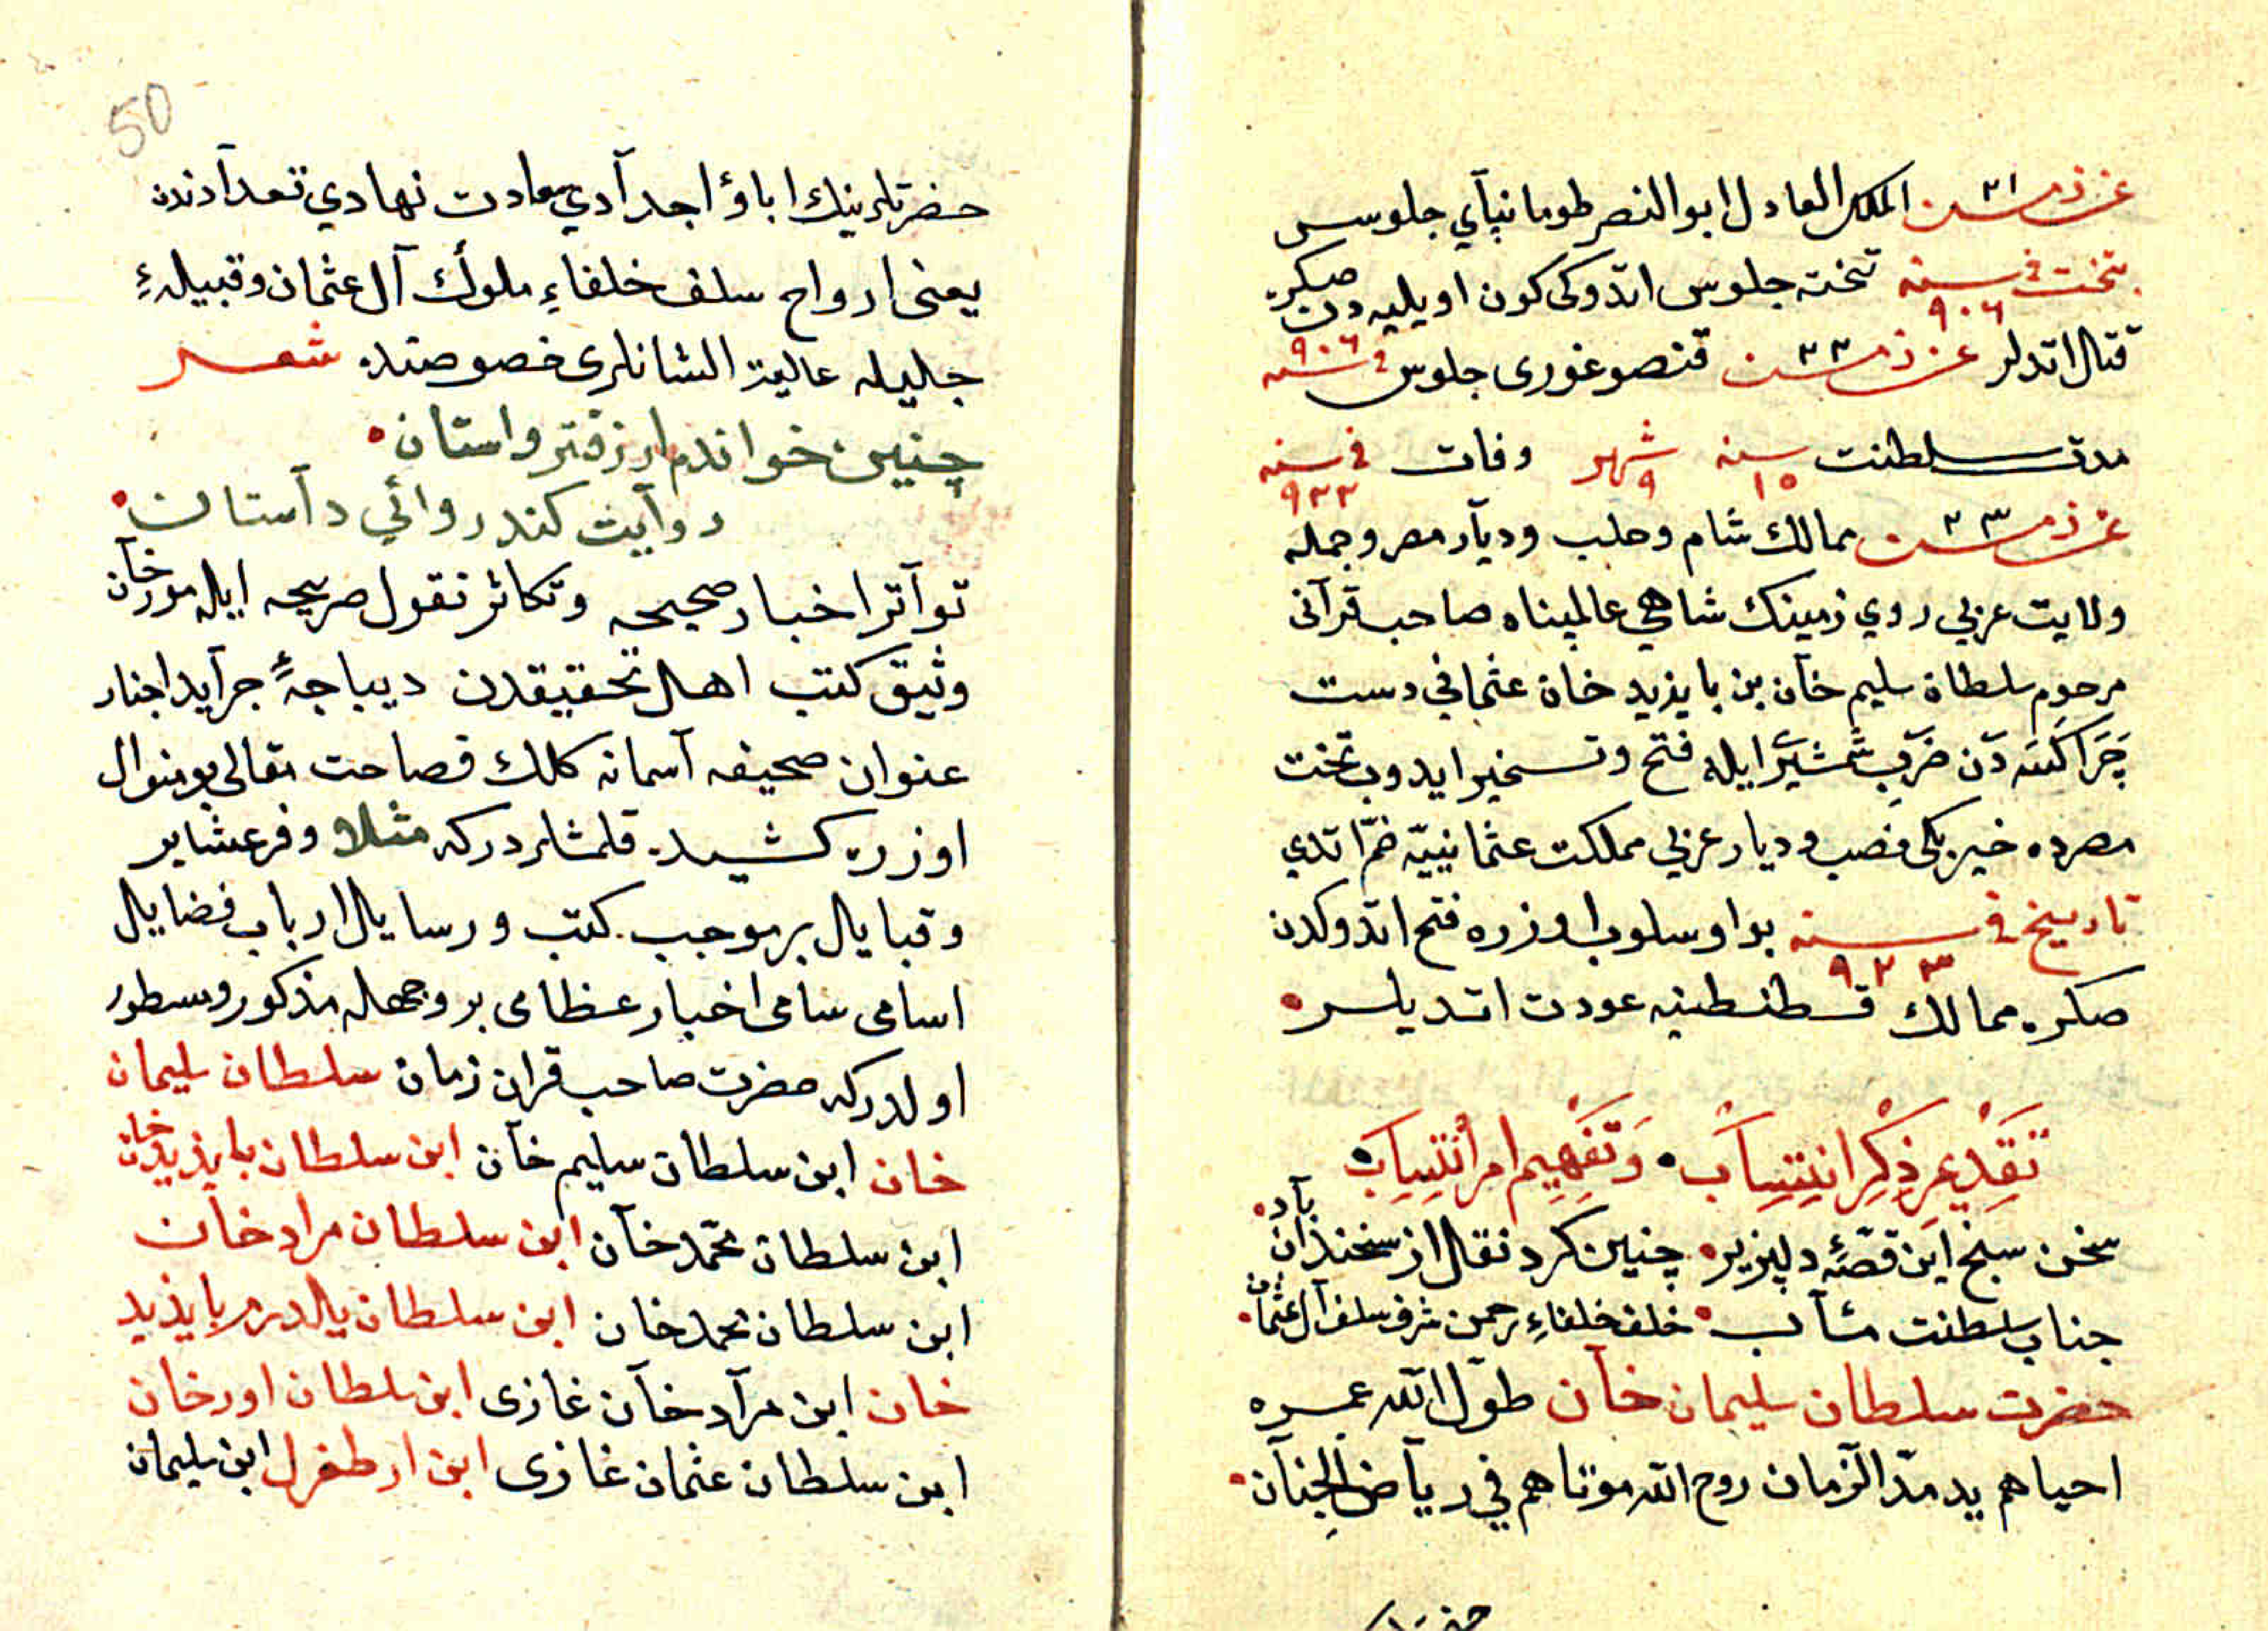 الملك العادل ابو النصر طومانبآي جلوس
تخت في سنه ٩٠٦ تخته جلوس اتدوكى كون اويليه دن صكره
قتال اتدلر ٣٢ قنصو غورى جلوس في سنه ٩٠٦
مدت سلطنت سنه ١٥ شهر ٩ وفات في سنه ٩٢٢
٣٣ ممالك شام وحلب وديآر مصر وجمله
ولايت عربي روي زمينك شاهي عالمپناه صاحب قرآنى
مرحوم سلطان سليم خآن بن بايزيد خان عثماني دست
چَرَاكَسَه دَن ضَربِ شَمْشِيَر ايله فتح وتسخير ايدوب تخت
مصرده خير بكى نصب وديار عربي مملكت عثمانييّه ضمّ اتدي
تاريخ في سنه ٩٢٣ بو اوسلوب اوزره فتح اتدوكدن
صكره ممالك قسطنطنيه عودت اتديلر
تَقَدِيمِ ذِكْرِ انتِسَاب وَتَفهِيم امر انتِسِاب
سخن سنج اين قصّهٔ دلپزير چنين كرد نقال از سخندان ياد
جناب سلطنت مئآب خلف خلفاءِ رحمن شرف سلف آل عثمان
حضرت سلطان سليمان خآن طوّل الله عمره
احياهم يد مدّ الزّمان روح الله موتاهم في رياض الجنآن
50
حضرتلرينك اباؤ اجدآدي سعادت نهادي تعدآدندن
يعنى ارواح سلف خلفاءِ ملوك آل عثمان وقبيلهءِ
جليله عاليۀ الشانلرى خصوصنده شعر
چنين خواندم از دفتر واستان
روآيت كند روائي دآستان
توآتر اخبار صحيحه وتكاثر نقول صريحه ايله مورخآن
وثيق كتب اهل تحقيقدن ديباجهٔ جرآيد اخبار
عنوان صحيفه آسمانه كلك فصاحت مقالى بو منوال
اوزره كشيده قلمشلردركه مثلا وفرعشاير
وقبايال برموجب كتب ورسايال ارباب فضايال
اسامى سامى اخبار عظامى بر وجهله مذكور ومسطور
اولدركه حضرت صاحب قران زمان سلطان سليمان
خان ابن سلطان سليم خآن ابن سلطان بايذيد خان
ابن سلطان محمّد خآن ابن سلطان مراد خآن
ابن سلطان محمد خان ابن سلطان يالدرم بايذيد
خان ابن مرآد خآن غازى ابن سلطان اورخان
ابن سلطان عثمان غازى ابن ارطغرل ابن سليمان